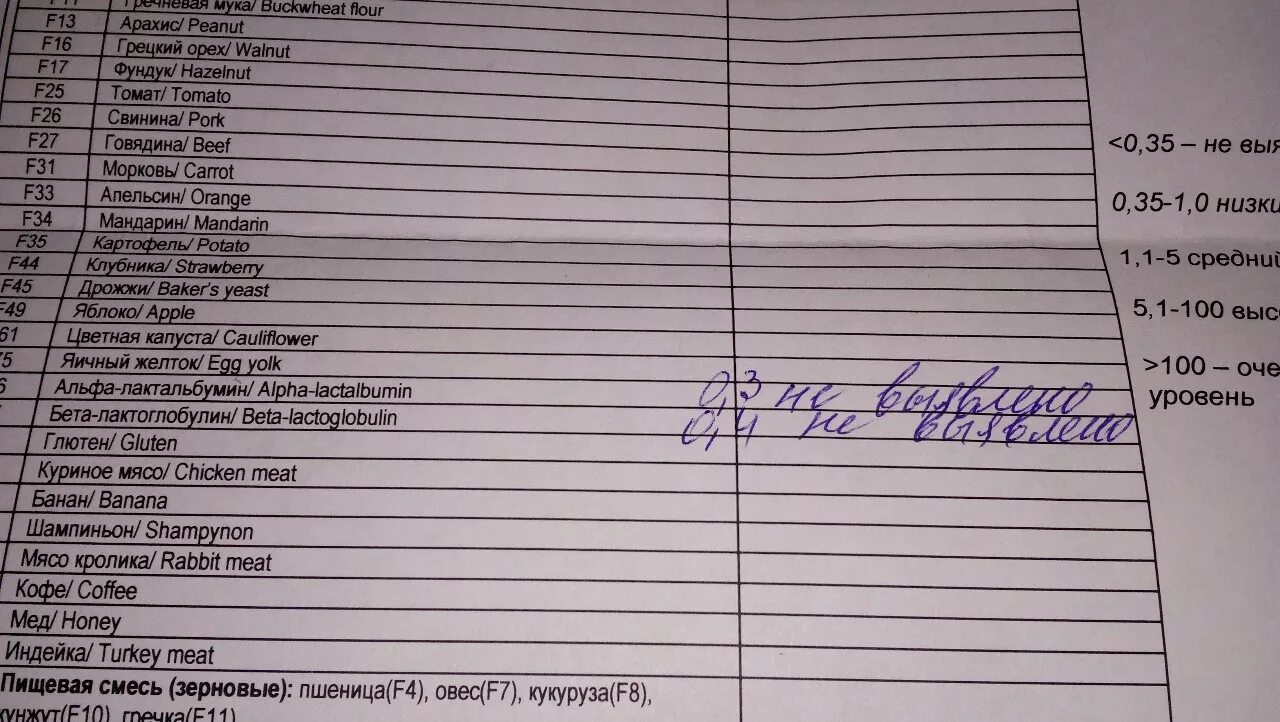 Гречневая мука/ Buckwheat flour
F13 Арахис/ Peanut
F16 Грецкий орех/ Walnut
F17 Фундук/ Hazelnut
F25 Томат/ Tomato
F26 Свинина/ Pork
F27 Говядина/ Beef
<0,35 – не выя
F31 Морковь/ Carrot
F33 Апельсин/ Orange
0,35-1,0 низки
F34 Мандарин/ Mandarin
F35 Картофель/ Potato
1,1-5 средний
F44 Клубника/ Strawberry
F45 Дрожжи/ Baker's yeast
F49 Яблоко/ Apple
5,1-100 высо
61 Цветная капуста/ Cauliflower
75 Яичный желток/ Egg yolk
>100 – оче
уровень
6 Альфа-лактальбумин/ Alpha-lactalbumin 0,3 не выявлено
Бета-лактоглобулин/ Beta-lactoglobulin 0,4 не выявлено
Глютен/ Gluten
Куриное мясо/ Chicken meat
Банан/ Banana
Шампиньон/ Shampynon
Мясо кролика/ Rabbit meat
Кофе/ Coffee
Мед/ Honey
Индейка/ Turkey meat
Пищевая смесь (зерновые): пшеница(F4), овес(F7), кукуруза(F8),
кунжут(F10), гречка(F11)